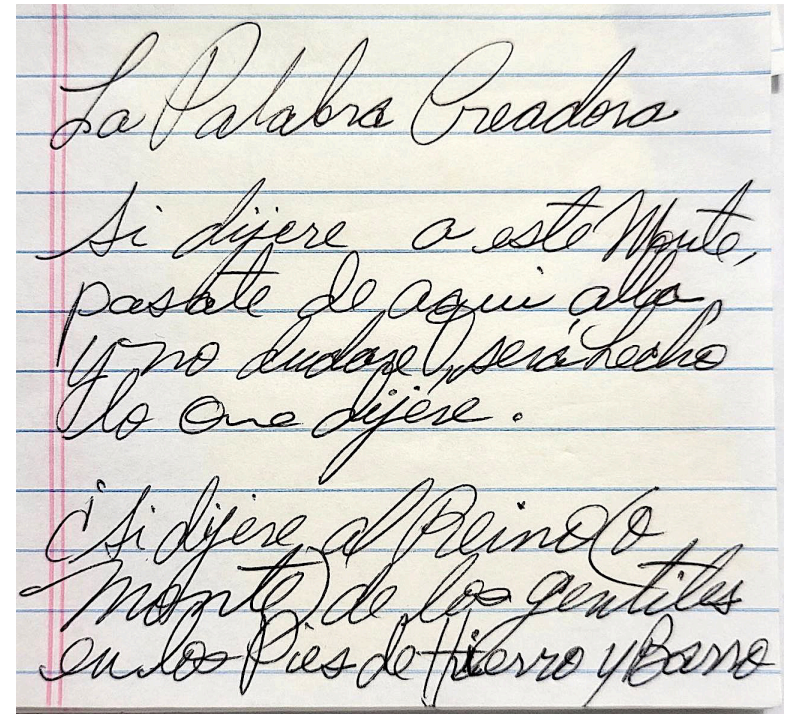 La Palabra Creadora
Si dijere a este Monte,
pasate de aqui alla,
y no dudare, será hecho
lo que dijere.
¿Si dijere al Reino (o
monte) de los gentiles
en los Pies de Hierro y Barro